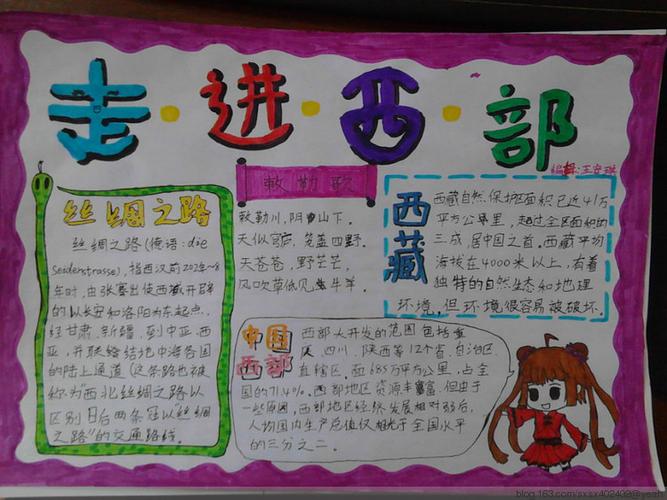 走·进·西·部
编辑:王安琪
丝绸之路
丝绸之路(德语:die
Seidenstrasse),指西汉前202年~8
年时,由张骞出使西域开辟
的以长安和洛阳为东起点,
经甘肃、新疆,到中亚、西
亚,并联络结地中海各国
的陆上通道(这条路也被
称为“西北丝绸之路”以
区别日后两条冠以丝绸
之路”的交通路线。
敕勒歌
敕勒川,阴山下。
天似穹庐,笼盖四野。
天苍苍,野茫茫,
风吹草低见牛羊。
西藏
西藏自然保护区面积已近41万
平方公里,超过全区面积的
三成,居中国之首。西藏平均
海拔在4000米以上,有着
独特的自然生态和地理
环境,但环境很容易被破坏。
中国
西部
西部大开发的范围包括重
庆、四川、陕西等12个省、自治区、
直辖区。面685万平方公里,占全
国的71.4%。西部地区资源丰富,但由于
一些原因,西部地区经济发展相对弱后,
人均国内生产总值仅相当于全国水平
的三分之二。
blog.163.com/sxsx402402@yeah